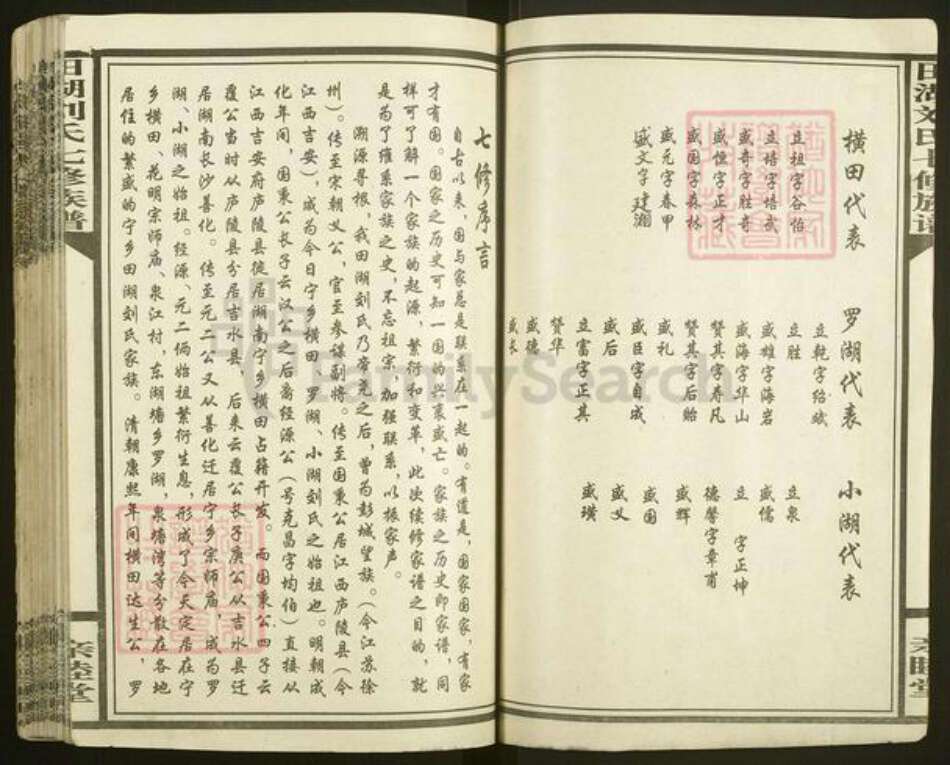 田湖刘氏七修族谱
亲睦堂
横田代表
立祖字谷怡
立培字培武
盛奇字胜奇
盛恒字正才
盛国字森林
盛元字春甲
盛文字建湘
罗湖代表
立乾字绍斌
立胜
盛雄字海岩
盛海字华山
赞其字寿凡
赞其字后贻
盛礼
盛臣字自成
盛后
立富字正其
赞华
盛德
盛长
小湖代表
立泉
盛儒
立 字正坤
德馨字章甫
盛辉
盛国
盛义
盛璜
七修序言
自古以来，国与家总是联系在一起的。有道是，国家国家，有家
才有国。国家之历史可知一国的兴衰盛亡。家族之历史即家谱，同
样可了解一个家族的起源，繁衍和变革，此次续修家谱之目的，就
是为了维系家族之史，不忘祖宗，加强联系，以振家声。
溯源寻根，我田湖刘氏乃帝尧之后，曾为彭城望族。（今江苏徐
州）。传至宋朝义公，官至参谋副将。传至国秉公居江西庐陵县（今
江西吉安），成为今日宁乡横田、罗湖、小湖刘氏之始祖也。明朝成
化年间，国秉公长子云汉公之后裔经源公（号克昌字均伯）直接从
江西吉安府庐陵县徙居湖南宁乡横田占籍开发。而国秉公四子云
覆公当时从庐陵县分居吉水县，后来云覆公长子庚公从吉水县迁
居湖南长沙善化。传至元二公又从善化迁居宁乡宗师庙，成为罗
湖、小湖之始祖。经源、元二俩始祖繁衍生息，形成了今天定居在宁
乡横田、花明宗师庙、泉江村，东湖塘乡罗湖，泉塘湾等分散在各地
居住的繁盛的宁乡田湖刘氏家族。清朝康熙年间横田达生公，罗
田湖刘氏七修族谱
亲睦堂
FamilySearch